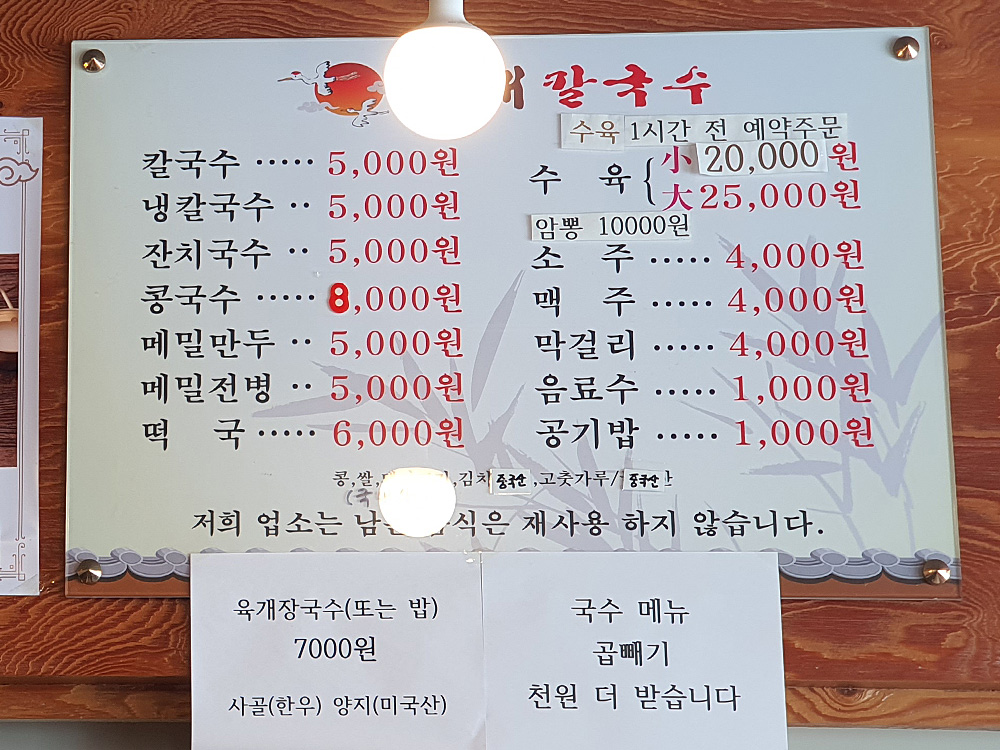 칼국수
수육 1시간 전 예약주문
칼국수 ····· 5,000원
냉칼국수 ·· 5,000원
잔치국수 ·· 5,000원
콩국수 ····· 8,000원
메밀만두 ·· 5,000원
메밀전병 ·· 5,000원
떡 국 ····· 6,000원
수 육 { 小 20,000원
大 25,000원
암뽕 10000원
소 주 ····· 4,000원
맥 주 ····· 4,000원
막걸리 ····· 4,000원
음료수 ····· 1,000원
공기밥 ····· 1,000원
콩,쌀, ,김치 중국산 ,고춧가루/ 중국산
(국
저희 업소는 은 재사용 하지 않습니다.
육개장국수(또는 밥)
7000원
사골(한우) 양지(미국산)
국수 메뉴
곱빼기
천원 더 받습니다